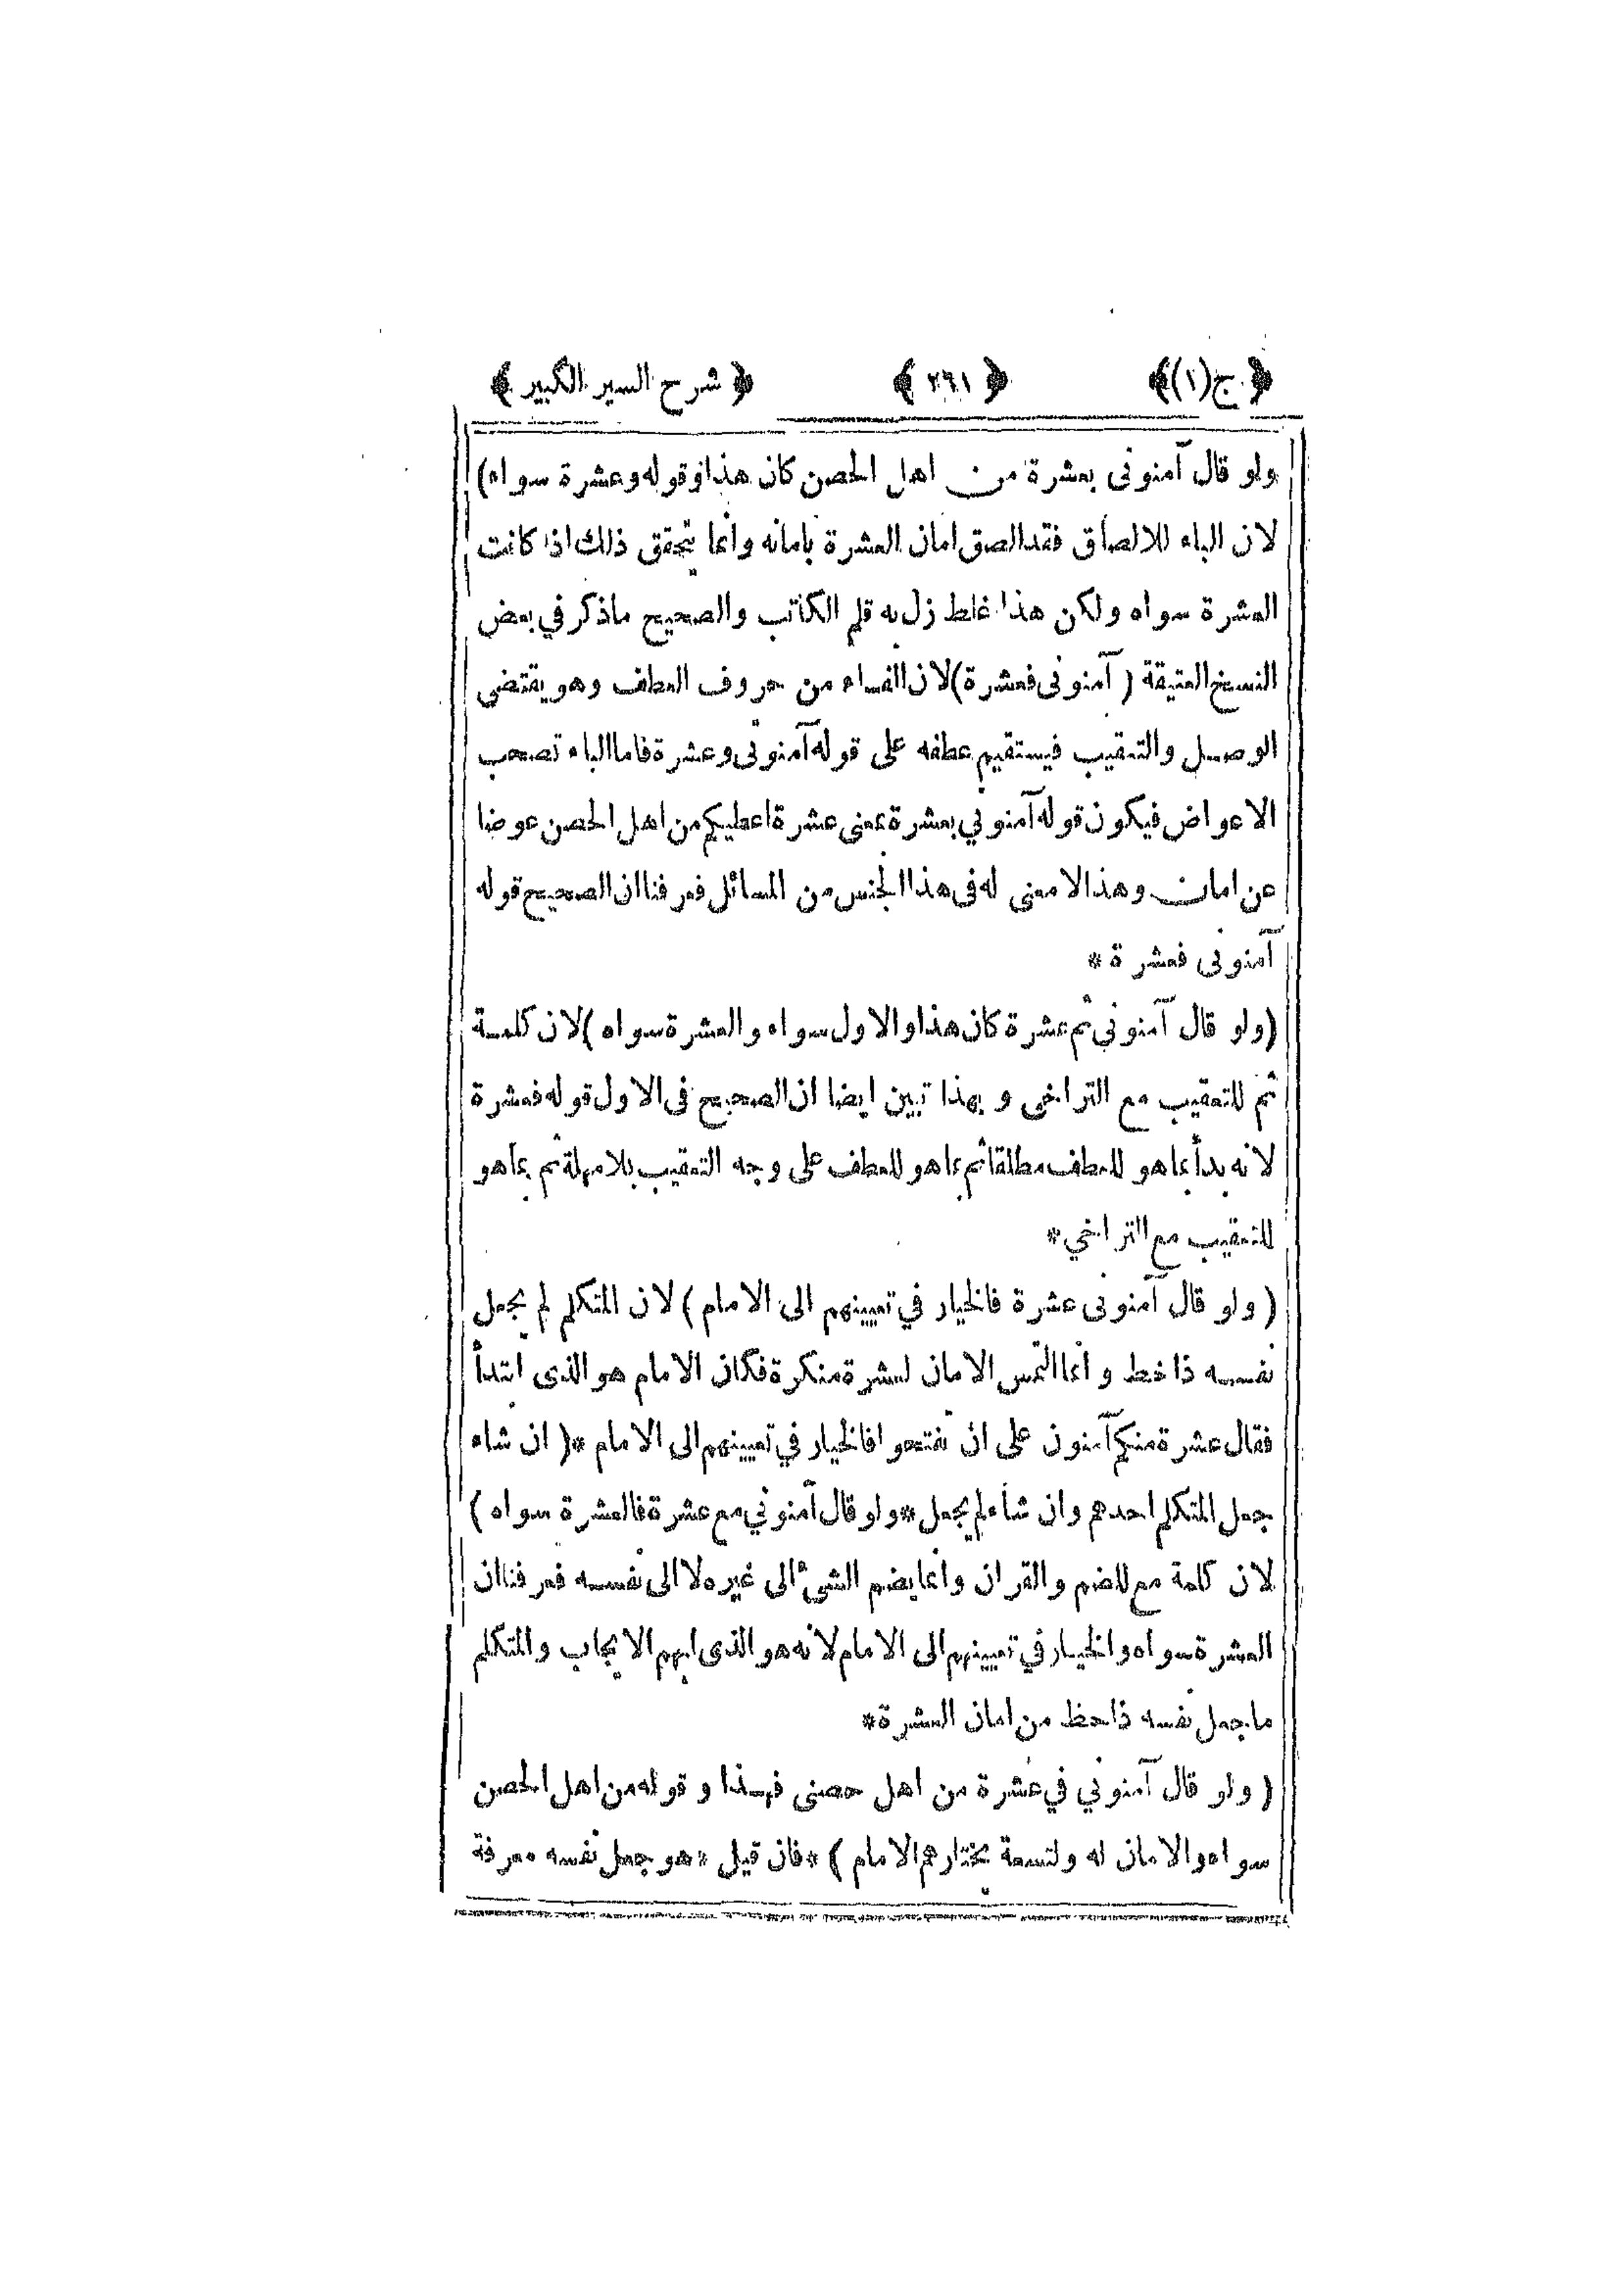 ﴿ ج (١) ﴾ ﴿ ٢٦١ ﴾ ﴿ شرح السير الكبير ﴾
ولو قال آمنونى بعشرة من اهل الحصن كان هذا وقوله وعشرة سواء)
لان الباء للالصاق فقد الصق امان العشرة بامانه وانما يتحقق ذلك اذا كانت
العشرة سواه ولكن هذا غلط زل به قلم الكاتب والصحيح ماذكر في بعض
النسخ العتيقة ( آمنونى فعشرة) لان الفاء من حروف العطف وهو يقتضى
الوصل والتعقيب فيستقيم عطفه على قوله آمنونى وعشرة فاما الباء تصحب
الاعواض فيكون قوله آمنوني بعشرة بمعنى عشرة اعطيكم من اهل الحصن عوضا
عن امان وهذا لا معنى له فى هذا الجنس من المسائل فعرفنا ان الصحيح قوله
آمنونى فعشرة *
(ولو قال آمنوني ثم عشرة كان هذا والاول سواء والعشرة سواه) لان كلمة
ثم للتعقيب مع التراخى و بهذا تبين ايضا ان الصحيح فى الاول قوله فعشرة
لانه بدأ بما هو للعطف مطلقا ثم بما هو للعطف على وجه التعقيب بلا مهلة ثم بما هو
للتعقيب مع التراخي *
( ولو قال آمنونى عشرة فالخيار في تعيينهم الى الامام ) لان المتكلم لم يجعل
نفسه ذا حظ و انما التمس الامان لعشرة منكرة فكان الامام هو الذى ابتدأ
فقال عشرة منكم آمنون على ان تفتحوا فالخيار في تعيينهم الى الامام * ( ان شاء
جعل المتكلم احدهم وان شاء لم يجعل * ولو قال آمنوني مع عشرة فالعشرة سواه )
لان كلمة مع للضم والقران وانما يضم الشئ الى غيره لا الى نفسه فعرفنا ان
العشرة سواه والخيار في تعيينهم الى الامام لانه هو الذى ابهم الايجاب والمتكلم
ما جعل نفسه ذا حظ من امان العشرة *
( ولو قال آمنوني في عشرة من اهل حصنى فهذا و قوله من اهل الحصن
سواء والامان له ولتسعة يختارهم الامام ) * فان قيل * هو جعل نفسه معرفة